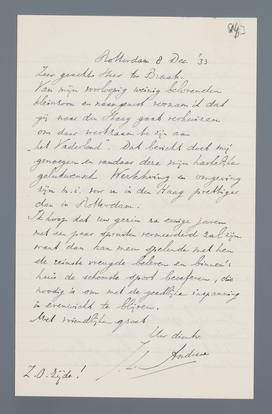 Rotterdam 8 Dec '33
Zeer geachte Heer ter Braak.
Van mijn voorloopig weinig belovenden
kleinzoon en naamgenoot vernam ik dat
gij naar den Haag gaat verhuizen
om daar werkzaam te zijn aan
"het Vaderland". Dat bericht doet mij
genoegen en vandaar deze mijn hartelijke
gelukwensch. Werkkring en omgeving
zijn m.i. voor u in den Haag prettiger
dan in Rotterdam.
Ik hoop dat uw gezin na eenige jaren
met een paar spruiten vermeerderd zal zijn
want dan kan men spelende met hen
de reinste vreugde beleven en binnen's
huis de schoonste sport beoefenen, die
noodig is om met de geestelijke inspanning
in evenwicht te blijven.
Met vriendelijke groet
Uw
Z.O.Zijde!